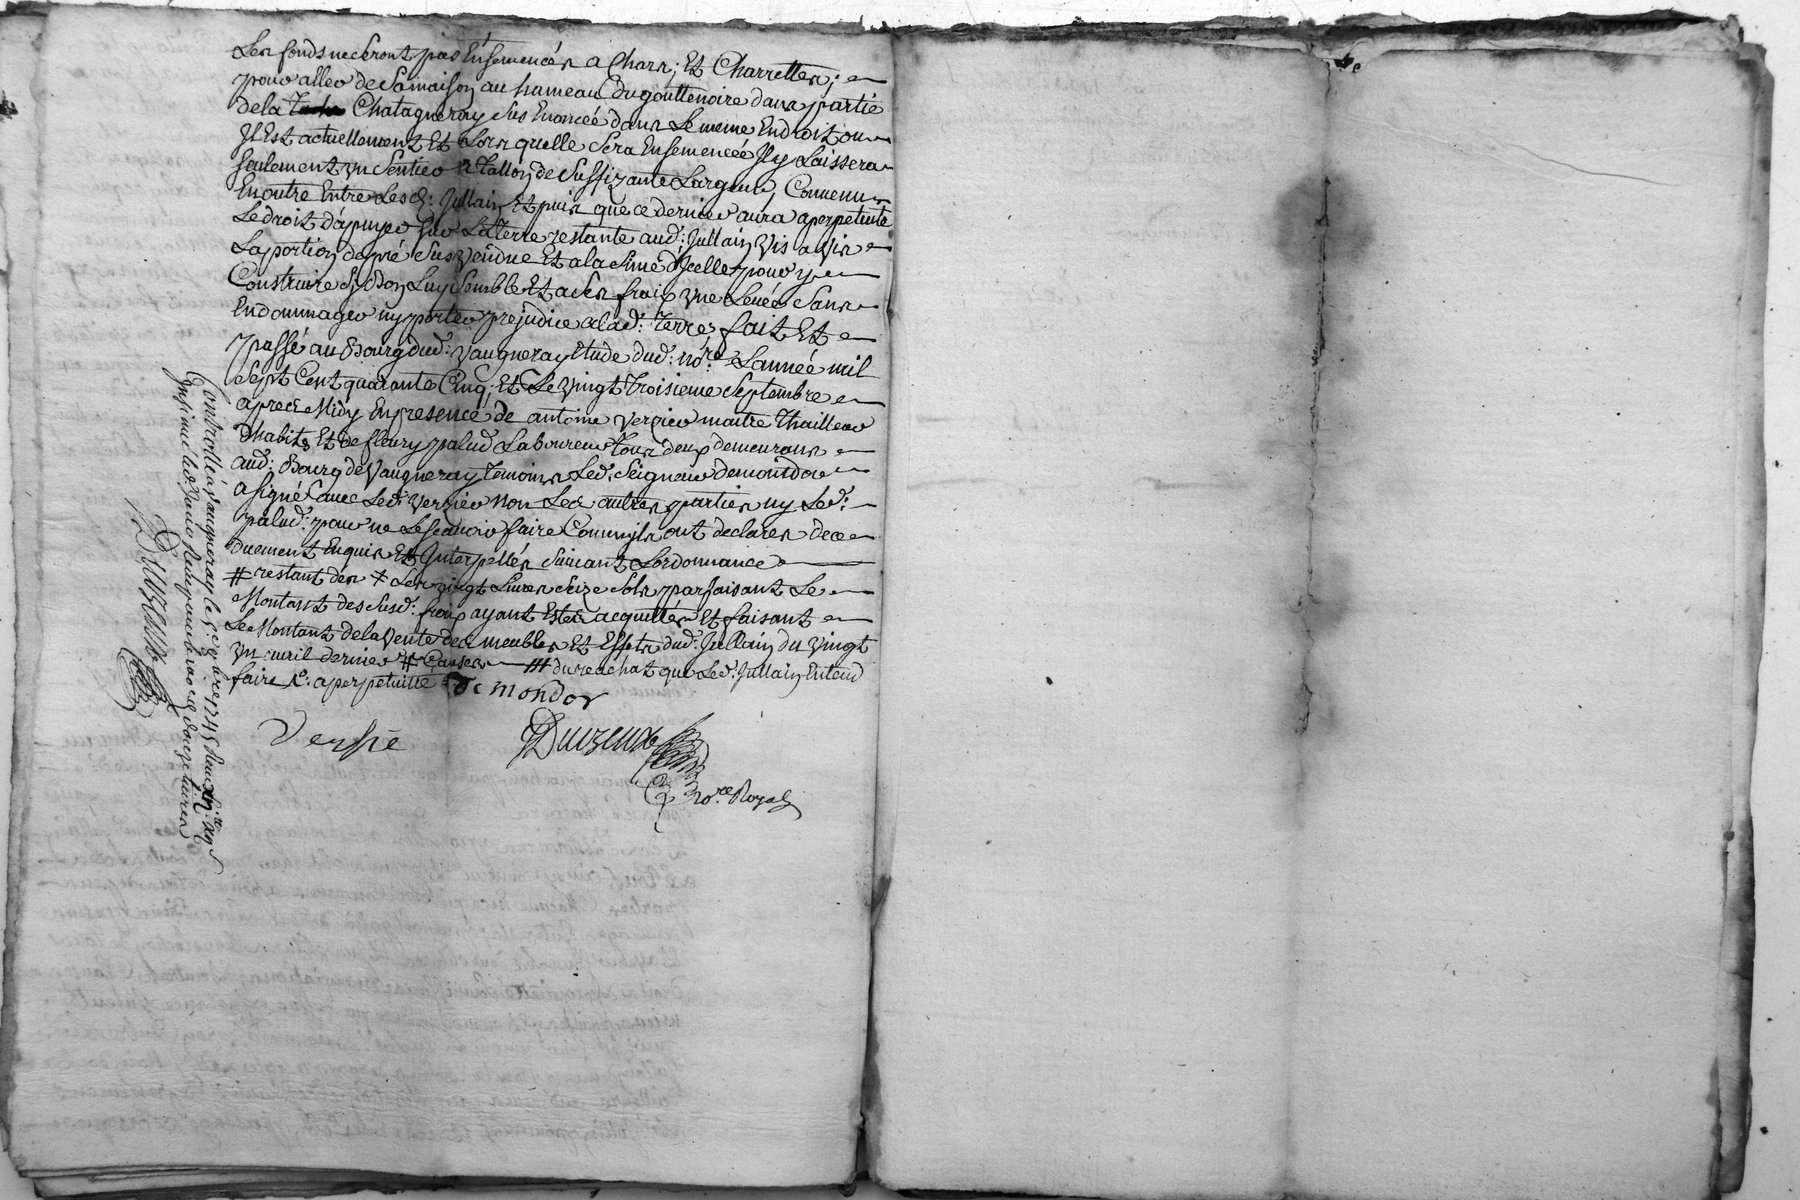 Les fonds ne seront pas Ensemencés a Chars, Et Charrettes,
pour aller de sa maison au hameau du gouttenoire dans partie
de la Chatagneray sus Enoncée dans Le meme Endroit ou
Il Est actuellement Et Lors quelle sera Ensemencée Il y Laissera
seulement un sentier a Tallon de suffizante Largeur, Convenu
En outre Entre Les d: Jullain Et puis que ce dernier aura a perpetuité
Le droit d'apuyer sur La terre restante aud: Jullain vis a vis
La portion de pré sus vendue Et a la sime d'Icelle pour y
Construire si bon Luy semble Et a ses fraix une Levée sans
Endommager ny porter prejudice a lad: terre, fait Et
passé au Bourg dud: vaugneray Etude dud: nore L'année mil
sept Cent quarante Cinq, Et Le vingt troisieme septembre
apres Midy En presence de antoine verzier maitre Thailleur
dhabits Et de fleury palud Laboureur tous deux demeurans
aud: Bourg de Vaugneray temoins Led: seigneur demontdor
a signé avec Led: verzier non Les autres parties ny Led:
palud: pour ne Le scavoir faire Comm'ils ont declarés de ce
duement Enquis Et Interpellés suivant L'ordonnance
# restant des + Les vingt Livres seize sols parfaisant Le
Montant des susd: fraix ayant Estés acquittés Et faisant
Le Montant de la vente des meubles Et Effets dud: Jullain du vingt
un avril dernier # Causes ## du reachat que Led: Jullain Entend
faire a perpetuitté
De mondor
Versie
Duizeux
Nore Royal
Controllé a Vaugneray le 7bre 1745
Insinué led jour